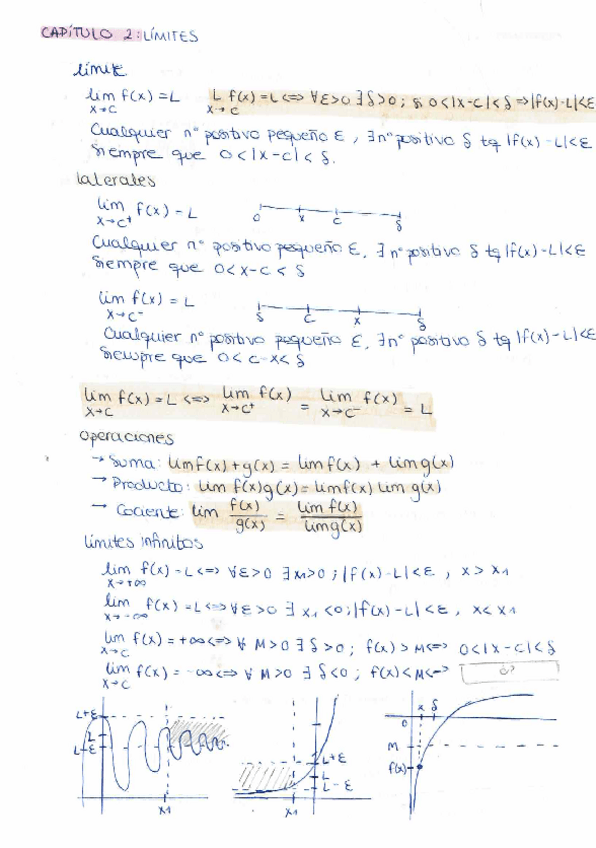 CAPÍTULO 2: LÍMITES
límite
lim f(x) = L L f(x) = L <=> ∀ε>0 ∃δ>0 ; si 0<|x-c|<δ => |f(x)-L|<ε
x→c x→c
Cualquier nº positivo pequeño ε, ∃ nº positivo δ tq |f(x)-L|<ε
siempre que 0<|x-c|<δ.
laterales
lim f(x) = L
x→c⁺
0 x c δ
Cualquier nº positivo pequeño ε, ∃ nº positivo δ tq |f(x)-L|<ε
siempre que 0<x-c<δ
lim f(x) = L
x→c⁻
δ c x δ
Cualquier nº positivo pequeño ε, ∃ nº positivo δ tq |f(x)-L|<ε
siempre que 0<c-x<δ
lim f(x) = L <=> lim f(x) = lim f(x) = L
x→c x→c⁺ x→c⁻
operaciones
→ Suma: lim f(x)+g(x) = lim f(x) + lim g(x)
→ Producto: lim f(x)g(x) = lim f(x) lim g(x)
→ Cociente: lim f(x)/g(x) = lim f(x)/lim g(x)
límites infinitos
lim f(x) = L <=> ∀ε>0 ∃ x1>0 ; |f(x)-L|<ε , x > x1
x→+∞
lim f(x) = L <=> ∀ε>0 ∃ x1<0 ; |f(x)-L|<ε, x<x1
x→-∞
lim f(x) = +∞ <=> ∀ M>0 ∃ δ>0 ; f(x) > M <=> 0<|x-c|<δ
x→c
lim f(x) = -∞ <=> ∀ M>0 ∃ δ<0 ; f(x)<M <=> ¿?
x→c
L+ε
L
L-ε
x1
L+ε
L
L-ε
x1
x δ
0
M
f(x)